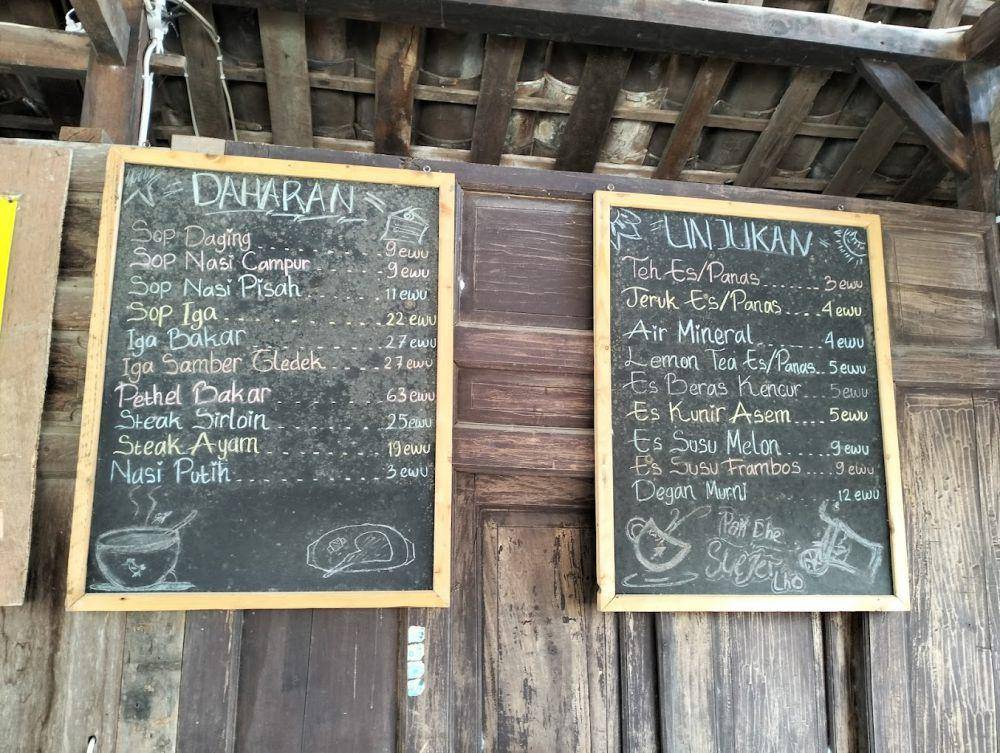 DAHARAN
Sop Daging 9 ewu
Sop Nasi Campur 9 ewu
Sop Nasi Pisah 11 ewu
Sop Iga 22 ewu
Iga Bakar 27 ewu
Iga Samber Gledek 27 ewu
Pethel Bakar 63 ewu
Steak Sirloin 25 ewu
Steak Ayam 19 ewu
Nasi Putih 3 ewu
UNJUKAN
Teh Es/Panas 3 ewu
Jeruk Es/Panas 4 ewu
Air Mineral 4 ewu
Lemon Tea Es/Panas 5 ewu
Es Beras Kencur 5 ewu
Es Kunir Asem 5 ewu
Es Susu Melon 9 ewu
Es Susu Frambos 9 ewu
Degan Murni 12 ewu
Seger
Lho